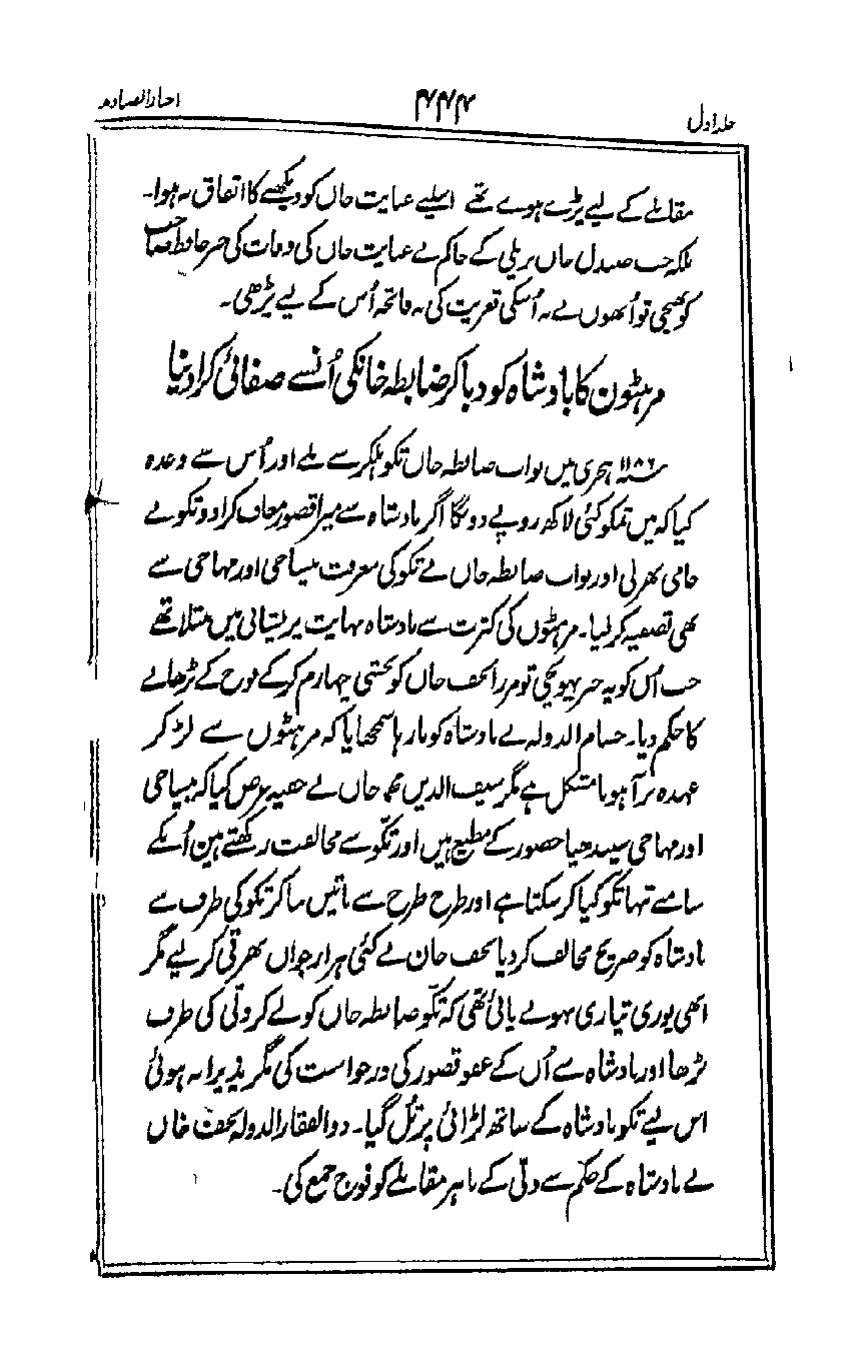 اخبار الصنادید
۴۴۴
جلد اول
مقابلے کے لیے پڑے ہوے تھے اسلیے عنایت خاں کو دیکھنے کا اتفاق نہ ہوا۔
بلکہ جب صیدل خاں بریلی کے حاکم نے عنایت خاں کی وفات کی خبر حافظ صاحب
کو بھیجی تو اُنھوں نے نہ اُسکی تعزیت کی نہ فاتحہ اُس کے لیے پڑھی۔
مرہٹوں کا بادشاہ کو دباکر ضابطہ خانکی اُنسے صفائی کرا دینا
سنہ ۱۱۸۶ ہجری میں نواب ضابطہ خاں تکو ہلکر سے ملے اور اُس سے وعدہ
کیا کہ میں تمکو کئی لاکھ روپے دونگا اگر بادشاہ سے میرا قصور معاف کرا دو تکو نے
حامی بھر لی اور نواب ضابطہ خاں نے تکو کی معرفت بیساجی اور مہاجی سے
بھی تصفیہ کر لیا۔ مرہٹوں کی کثرت سے بادشاہ نہایت پریشانی میں مبتلا تھے
جب اُس کو یہ خبر پہونچی تو مرزا نجف خاں کو بخشی چہارم کرکے فوج کے بڑھانے
کا حکم دیا۔ حسام الدولہ نے بادشاہ کو بارہا سمجھایا کہ مرہٹوں سے لڑ کر
عہدہ برآ ہونا مشکل ہے مگر سیف الدین محمد خاں نے خفیہ عرض کیا کہ بیساجی
اور مہاجی سیندھیا حضور کے مطیع ہیں اور تکو سے مخالفت رکھتے ہین اُنکے
سامنے تنہا تکو کیا کر سکتا ہے اور طرح طرح سے باتیں بنا کر تکو کی طرف سے
بادشاہ کو صریح مخالف کر دیا نجف خان نے کئی ہزار جواں بھرتی کر لیے مگر
ابھی پوری تیاری نہونے پائی تھی کہ تکو ضابطہ خاں کو لے کر دلّی کی طرف
بڑھا اور بادشاہ سے اُس کے عفو قصور کی درخواست کی مگر پذیرا نہ ہوئی
اس لیے تکو بادشاہ کے ساتھ لڑائی پر تُل گیا۔ ذوالفقار الدولہ نجف خاں
نے بادشاہ کے حکم سے دلّی کے باہر مقابلے کو فوج جمع کی۔